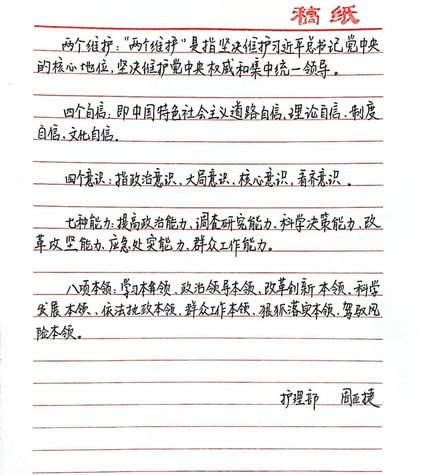 稿纸
两个维护:"两个维护"是指坚决维护习近平总书记党中央
的核心地位,坚决维护党中央权威和集中统一领导。
四个自信:即中国特色社会主义道路自信、理论自信、制度
自信、文化自信。
四个意识:指政治意识、大局意识、核心意识、看齐意识。
七种能力:提高政治能力、调查研究能力、科学决策能力、改
革攻坚能力、应急处突能力、群众工作能力。
八项本领:学习本领、政治领导本领、改革创新本领、科学
发展本领、依法执政本领、群众工作本领、狠抓落实本领、驾驭风
险本领。
护理部 周亚捷